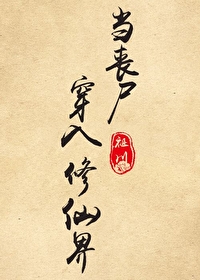 当丧尸
穿入
修仙界